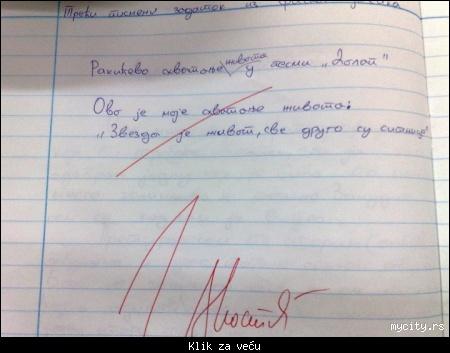 Трећи писмени задатак из
Ракићево схватање живота у песми „Долап"
Ово је моје схватање живота:
„Звезда је живот, све друго су ситнице"
1
mycity.rs
Klik za veću